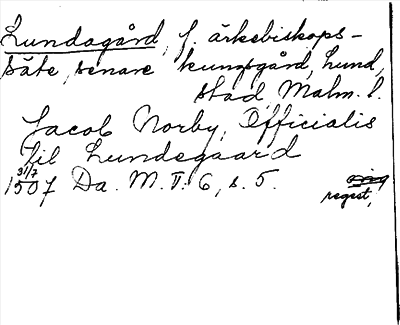 Lundagård, f. ärkebiskops-
säte, senare kungsgård, Lund,
stad, Malm. l.
Jacob Norby, Officialis
til Lundegaard
31/7
1507 Da. M. II: 6, s. 5.
regest,